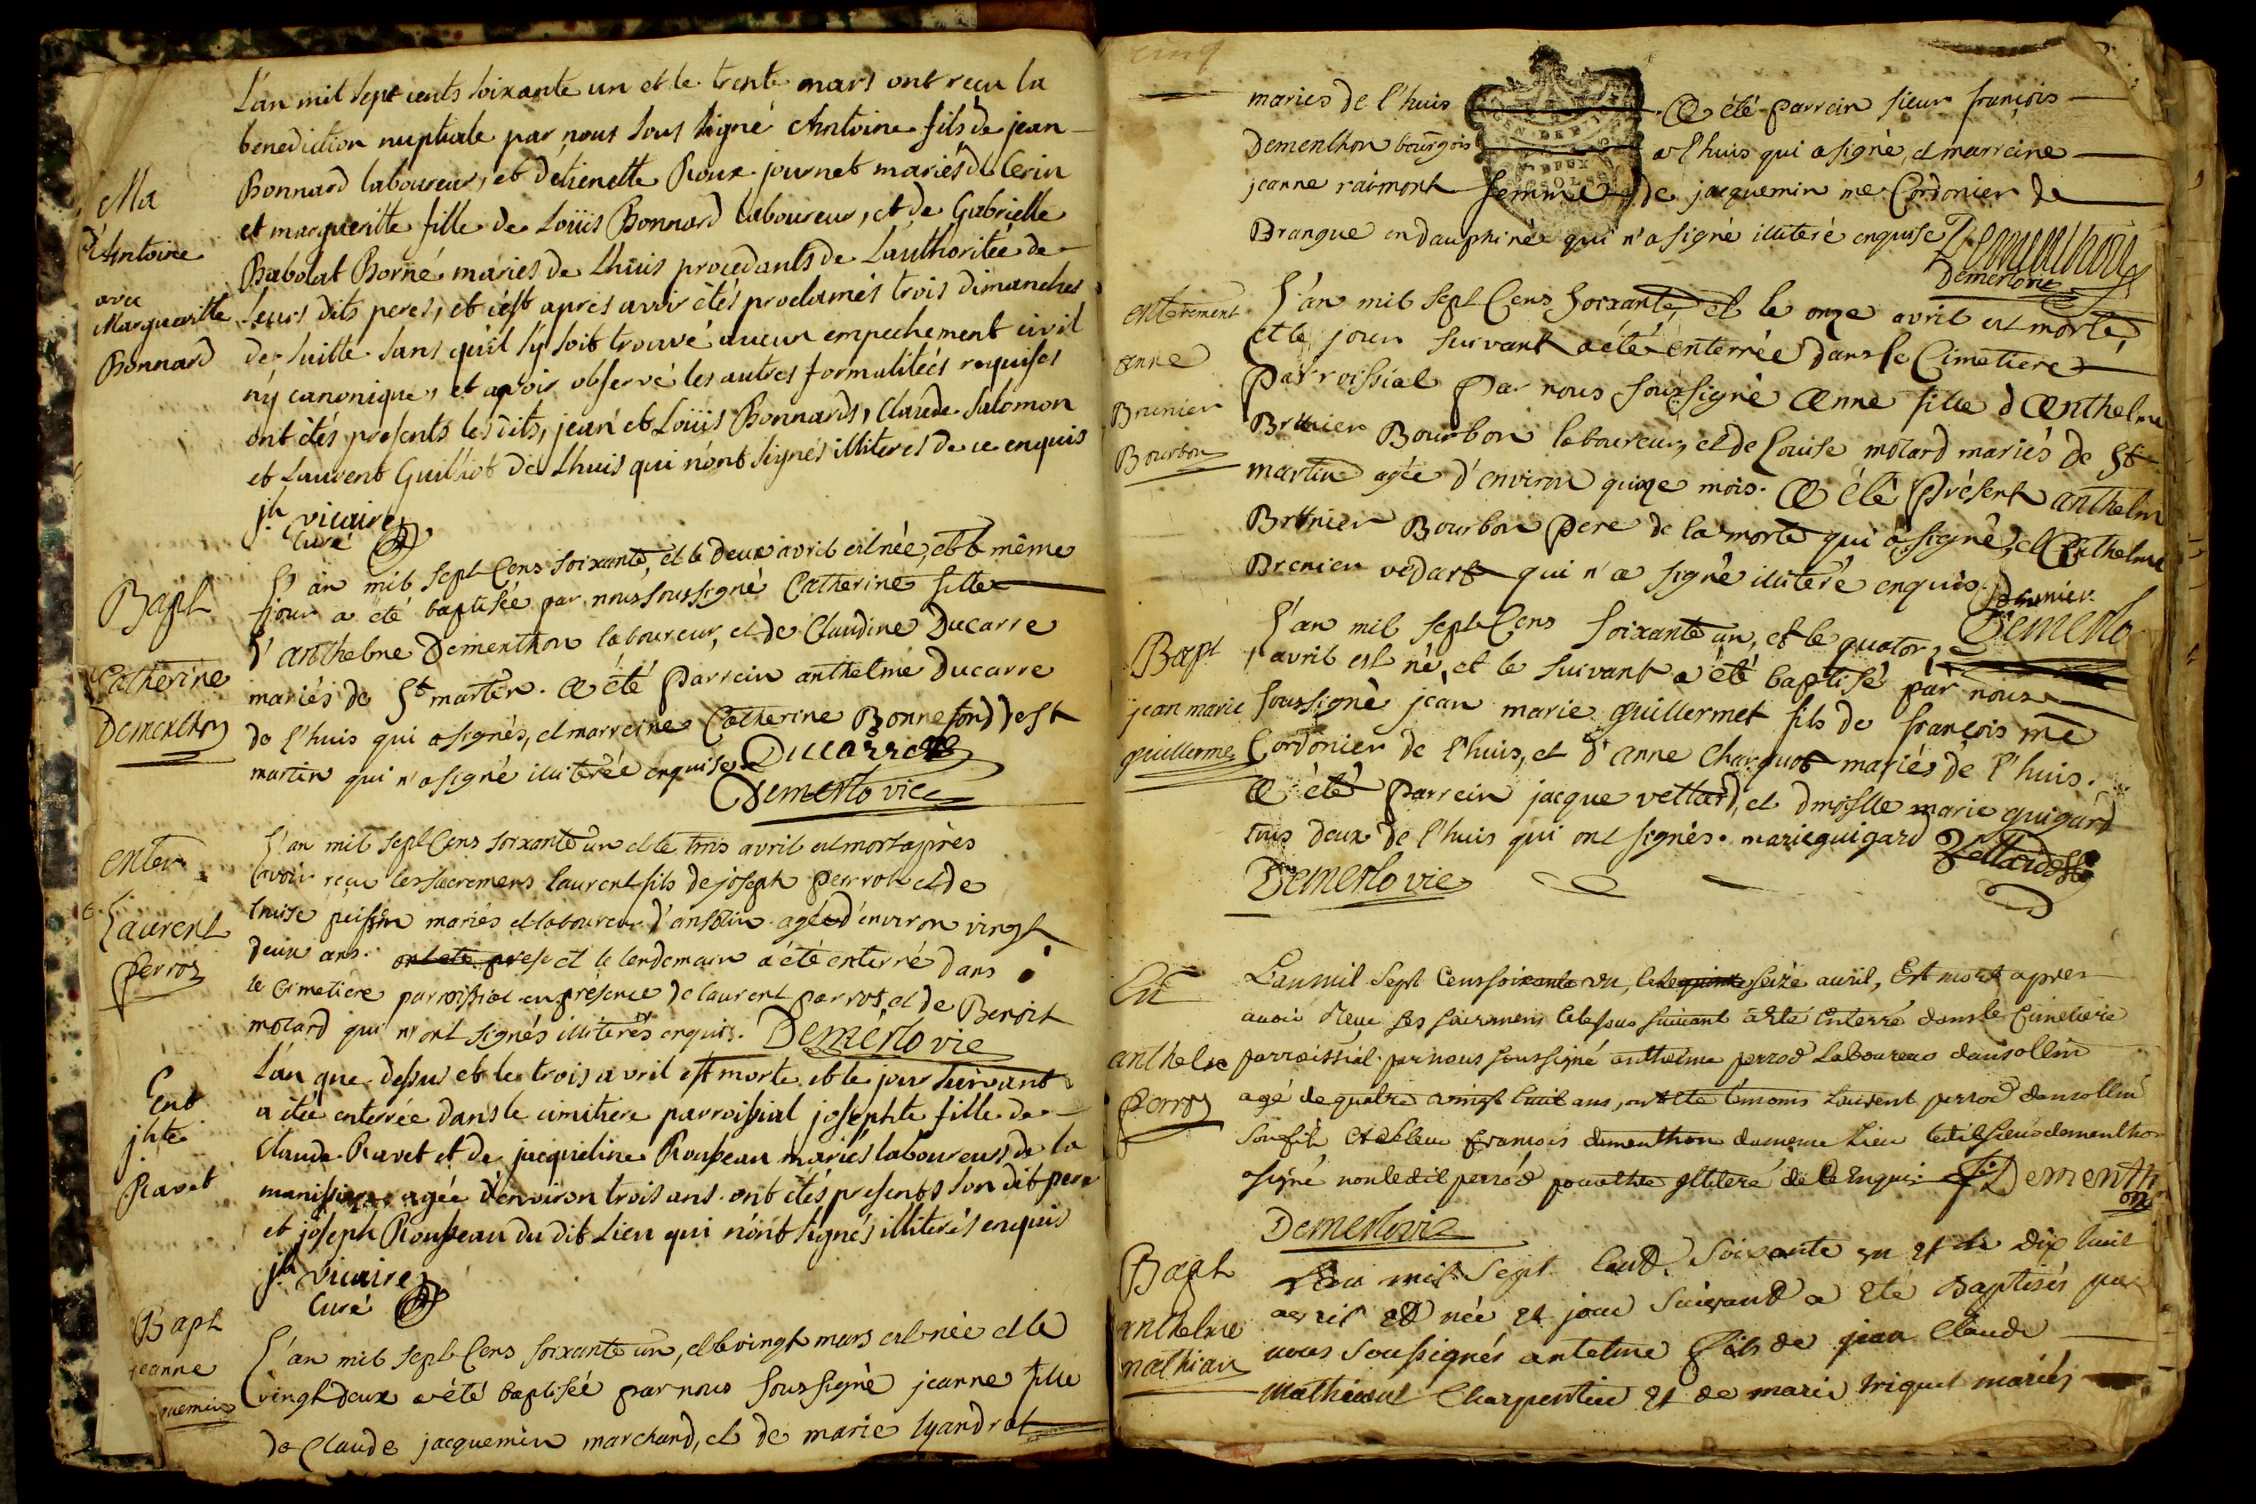 L'an mil sept cents soixante un et le trente mars ont recu la
benediction nuptiale par nous sous signé Antoine fils de jean
Ma
Bonnard laboureur, et detienette Roux journet mariés de Cerin
et margueritte fille de Loüis Bonnard laboureur, et de Gabrielle
d'Antoine
Babolat Borné mariés de Lhuis procedants de L'authoritée de
avec
Margueritte
leurs dits peres, et c'est apres avoir étés proclamés trois dimanches
de suitte sans qu'il s'y soit trouvé aucun empechement civil
Bonnard
ny canonique, et avoir observé les autres formalitées requises
ont étés presents les dits, jean et Loüis Bonnards, Claude Salomon
et Laurent Guilliot de Lhuis qui n'ont signés illiteres de ce enquis
jh vicaire
Curé
L'an mil sept Cens soixante, et le deux avril est née, et le même
Bapt
jour a été baptisée par nous soussigné Catherine fille
d'anthelme Dementhon laboureur, et de Claudine Ducarre
Catherine
mariés de St martin. A été parrein anthelme Ducarre
Dementhon
de l'huis qui a signés, et marreine Catherine Bonnefond de St
martin qui n'a signé illiterée enquise. Ducarre
Demerlo vic
L'an mil sept Cens soixante un et le trois avril est mort après
enter
avoir reçu les sacremens laurent fils de joseph perrot et de
Laurent
louise mariés et laboureur d'ansolin agée d'environ vingt
perroz
deux ans. ont eté prese et le lendemain a été enterré dans
le cimetiere parroissial en présence de laurent parrot et de Benoit
molard qui n'ont signés illiterés enquis. Demerlo vic
L'an que dessu et le trois avril est morte et le jour suivant
Ent
a étée enterrée dans le cimitiere parroissial josephte fille de
jhte
Claude Ravet et de jacqueline Rousseau mariés laboureurs de la
Ravet
agée d'environ trois ans. ont étés presents son dit pere
et joseph Rousseau du dit Lieu qui n'ont signés illiterés enquis
jh vicaire
Curé
Bapt
L'an mil sept Cens soixante un, et le vingt mars est née et le
jeanne
vingt deux a été baptisée par nous soussigné jeanne fille
quemin
de Claude jacquemin marchand, et de marie lyandrat
cinq
mariés de l'huis. A été parrein sieur françois
Dementhon bourgois a l'huis qui a signé, et marreine
jeanne raimont femme de jacquemin me Cordonier de
Brangue en dauphiné qui n'a signé illiteré enquise Dementhon
Demerlo vic
L'an mil sept Cens soixante, et le onze avril est morte,
enterement
et le jour suivant a été enterrée dans le Cimetiere
anne
parroissial par nous soussigné Anne fille d'Anthelme
Brunier
Brunier Bourbon laboureur, et de Louise molard mariés de St
Bourbon
martin agée d'environ quinze mois. A été présent anthelm
Brunier Bourbon pere de la morte qui a signé, et Anthelme
Brenier vedart qui n'a signé illiteré enquis. Brunier
Demerlo
L'an mil sept Cens soixante un, et le quator
Bapt
avril est né, et le suivant a été baptisé par nous
jean marie
soussigné jean marie guillermet fils de françois me
guillermet
Cordonier de l'huis, et d'anne Charquot mariés de l'huis.
A été parrein jacque vettard, et dmoiselle marie guigard
tous deux de l'huis qui ont signés. marie guigard Vettard
Demerlo vic
L'an mil Sept Cens soixante un, et le quinze seize avril, Est mort apres
Ent
avoir Reçu ses sacremens et le jour suivant a été enterré dans le Cimetiere
anthelme
parroissial par nous soussigné anthelme perrod Laboureur d'ansollin
perroz
agé de quatre vingt huit ans, ont été témoins Laurent perrod d'ansollin
son fils et françois dementhon du meme Lieu ledit sieur dementhon
signé non ledit perrod pour être illiteré de ce enquis F Dementh
on
Demerlo vic
Bapt
L'an mil Sept Cent Soixante un et le dix huit
avril est née et jour suivant a été baptisés par
anthelme
nous Soussignés antelme fils de jean Claude
mathian
Mathieul Charpentier et de marie triquet mariés